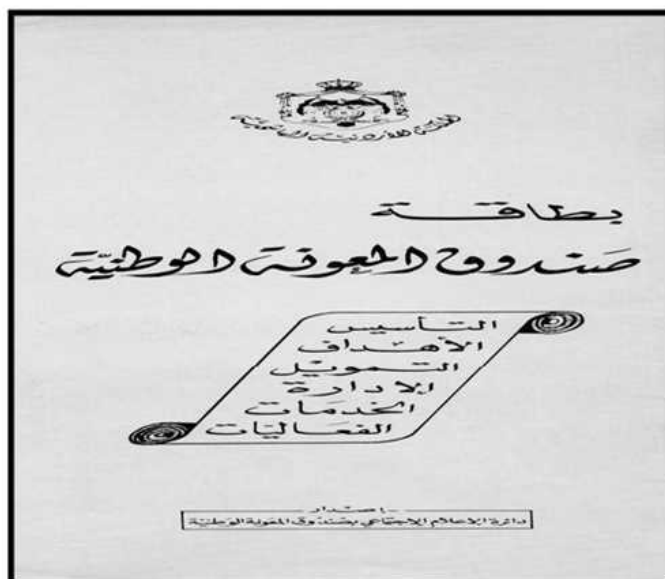 المملكة الأردنية الهاشمية
بطاقة
صندوق المعونة الوطنية
التأسيس
الأهداف
التمويل
الإدارة
الخدمات
الفعاليات
إصدار
دائرة الإعلام الاجتماعي بصندوق المعونة الوطنية